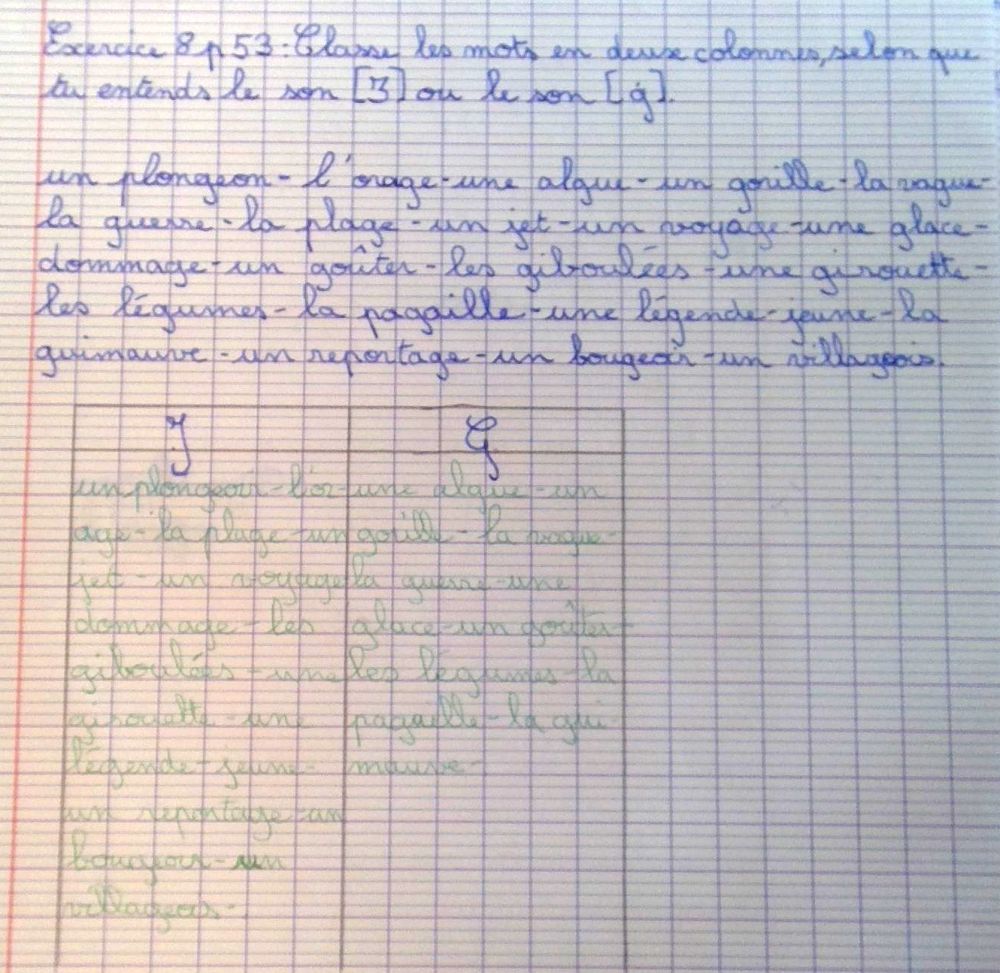 Exercice 8 p 53 : Classe les mots en deux colonnes, selon que
tu entends le son [3] ou le son [g].
un plongeon - l'orage - une algue - un gorille - la vague -
la guerre - la plage - un jet - un voyage - une glace -
dommage - un goûter - les giboulées - une girouette -
les légumes - la pagaille - une légende - jeune - la
guimauve - un reportage - un bougeoir - un villageois.
J
G
un plongeoir - l'or
age - la plage - un
jet - un voyage
dommage - les
giboulées - une
girouette - une
légende - jeune -
un reportage - un
bougeoir - un
villageois -
une algue - un
gorille - la vague -
la guerre - une
glace - un goûter -
les légumes - la
pagaille - la gui
mauve -